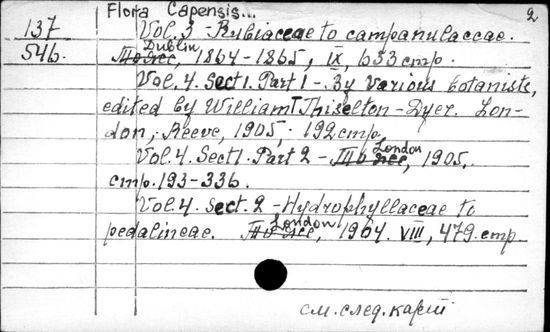 Flora Capensis... 2
137 Vol. 3 - Rubiaceae to campanulaceae.
546. Dublin, 1864-1865, IX, 633 стр.
Vol. 4. Sect 1. Part 1 - By various botanists,
edited by William T Thiselton-Dyer. Lon-
don, Reeve, 1905, 192 стр,
Vol. 4. Sect 1. Part 2 - London, 1905.
стр. 193-336.
Vol 4. Sect. 2 - Hydrophyllaceae to
pedalineae. London, 1904. VIII, 479. стр
см. след. карт